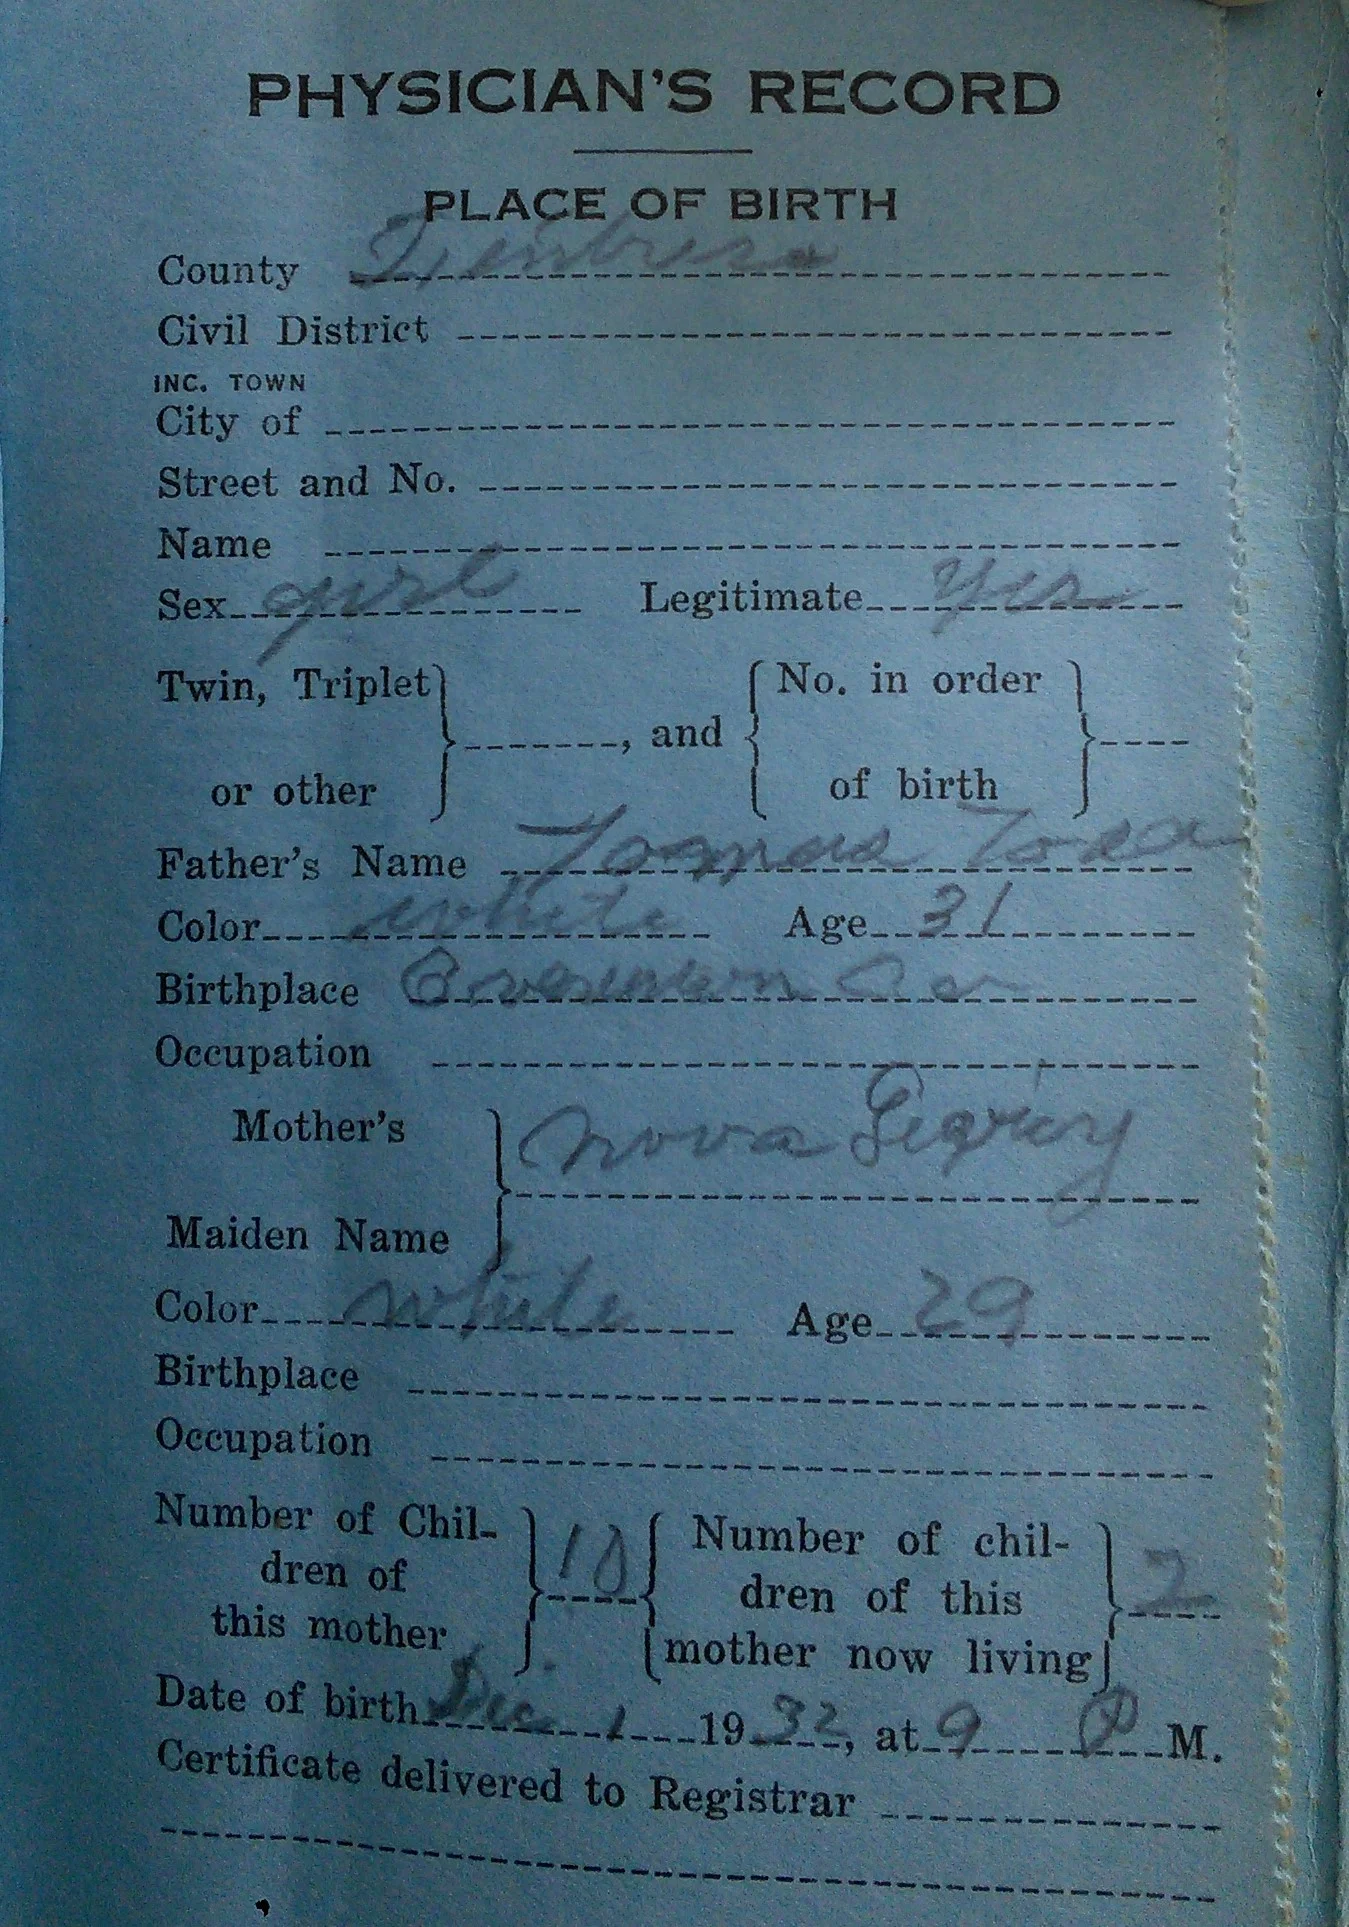 PHYSICIAN'S RECORD
PLACE OF BIRTH
County
Civil District
INC. TOWN
City of
Street and No.
Name
Sex girl Legitimate yes
Twin, Triplet or other , and No. in order of birth
Father's Name
Color white Age 31
Birthplace
Occupation
Mother's Maiden Name Nova
Color white Age 29
Birthplace
Occupation
Number of Chil-dren of this mother 10 Number of chil-dren of this mother now living 2
Date of birth Dec 1 1932, at 9 P M.
Certificate delivered to Registrar